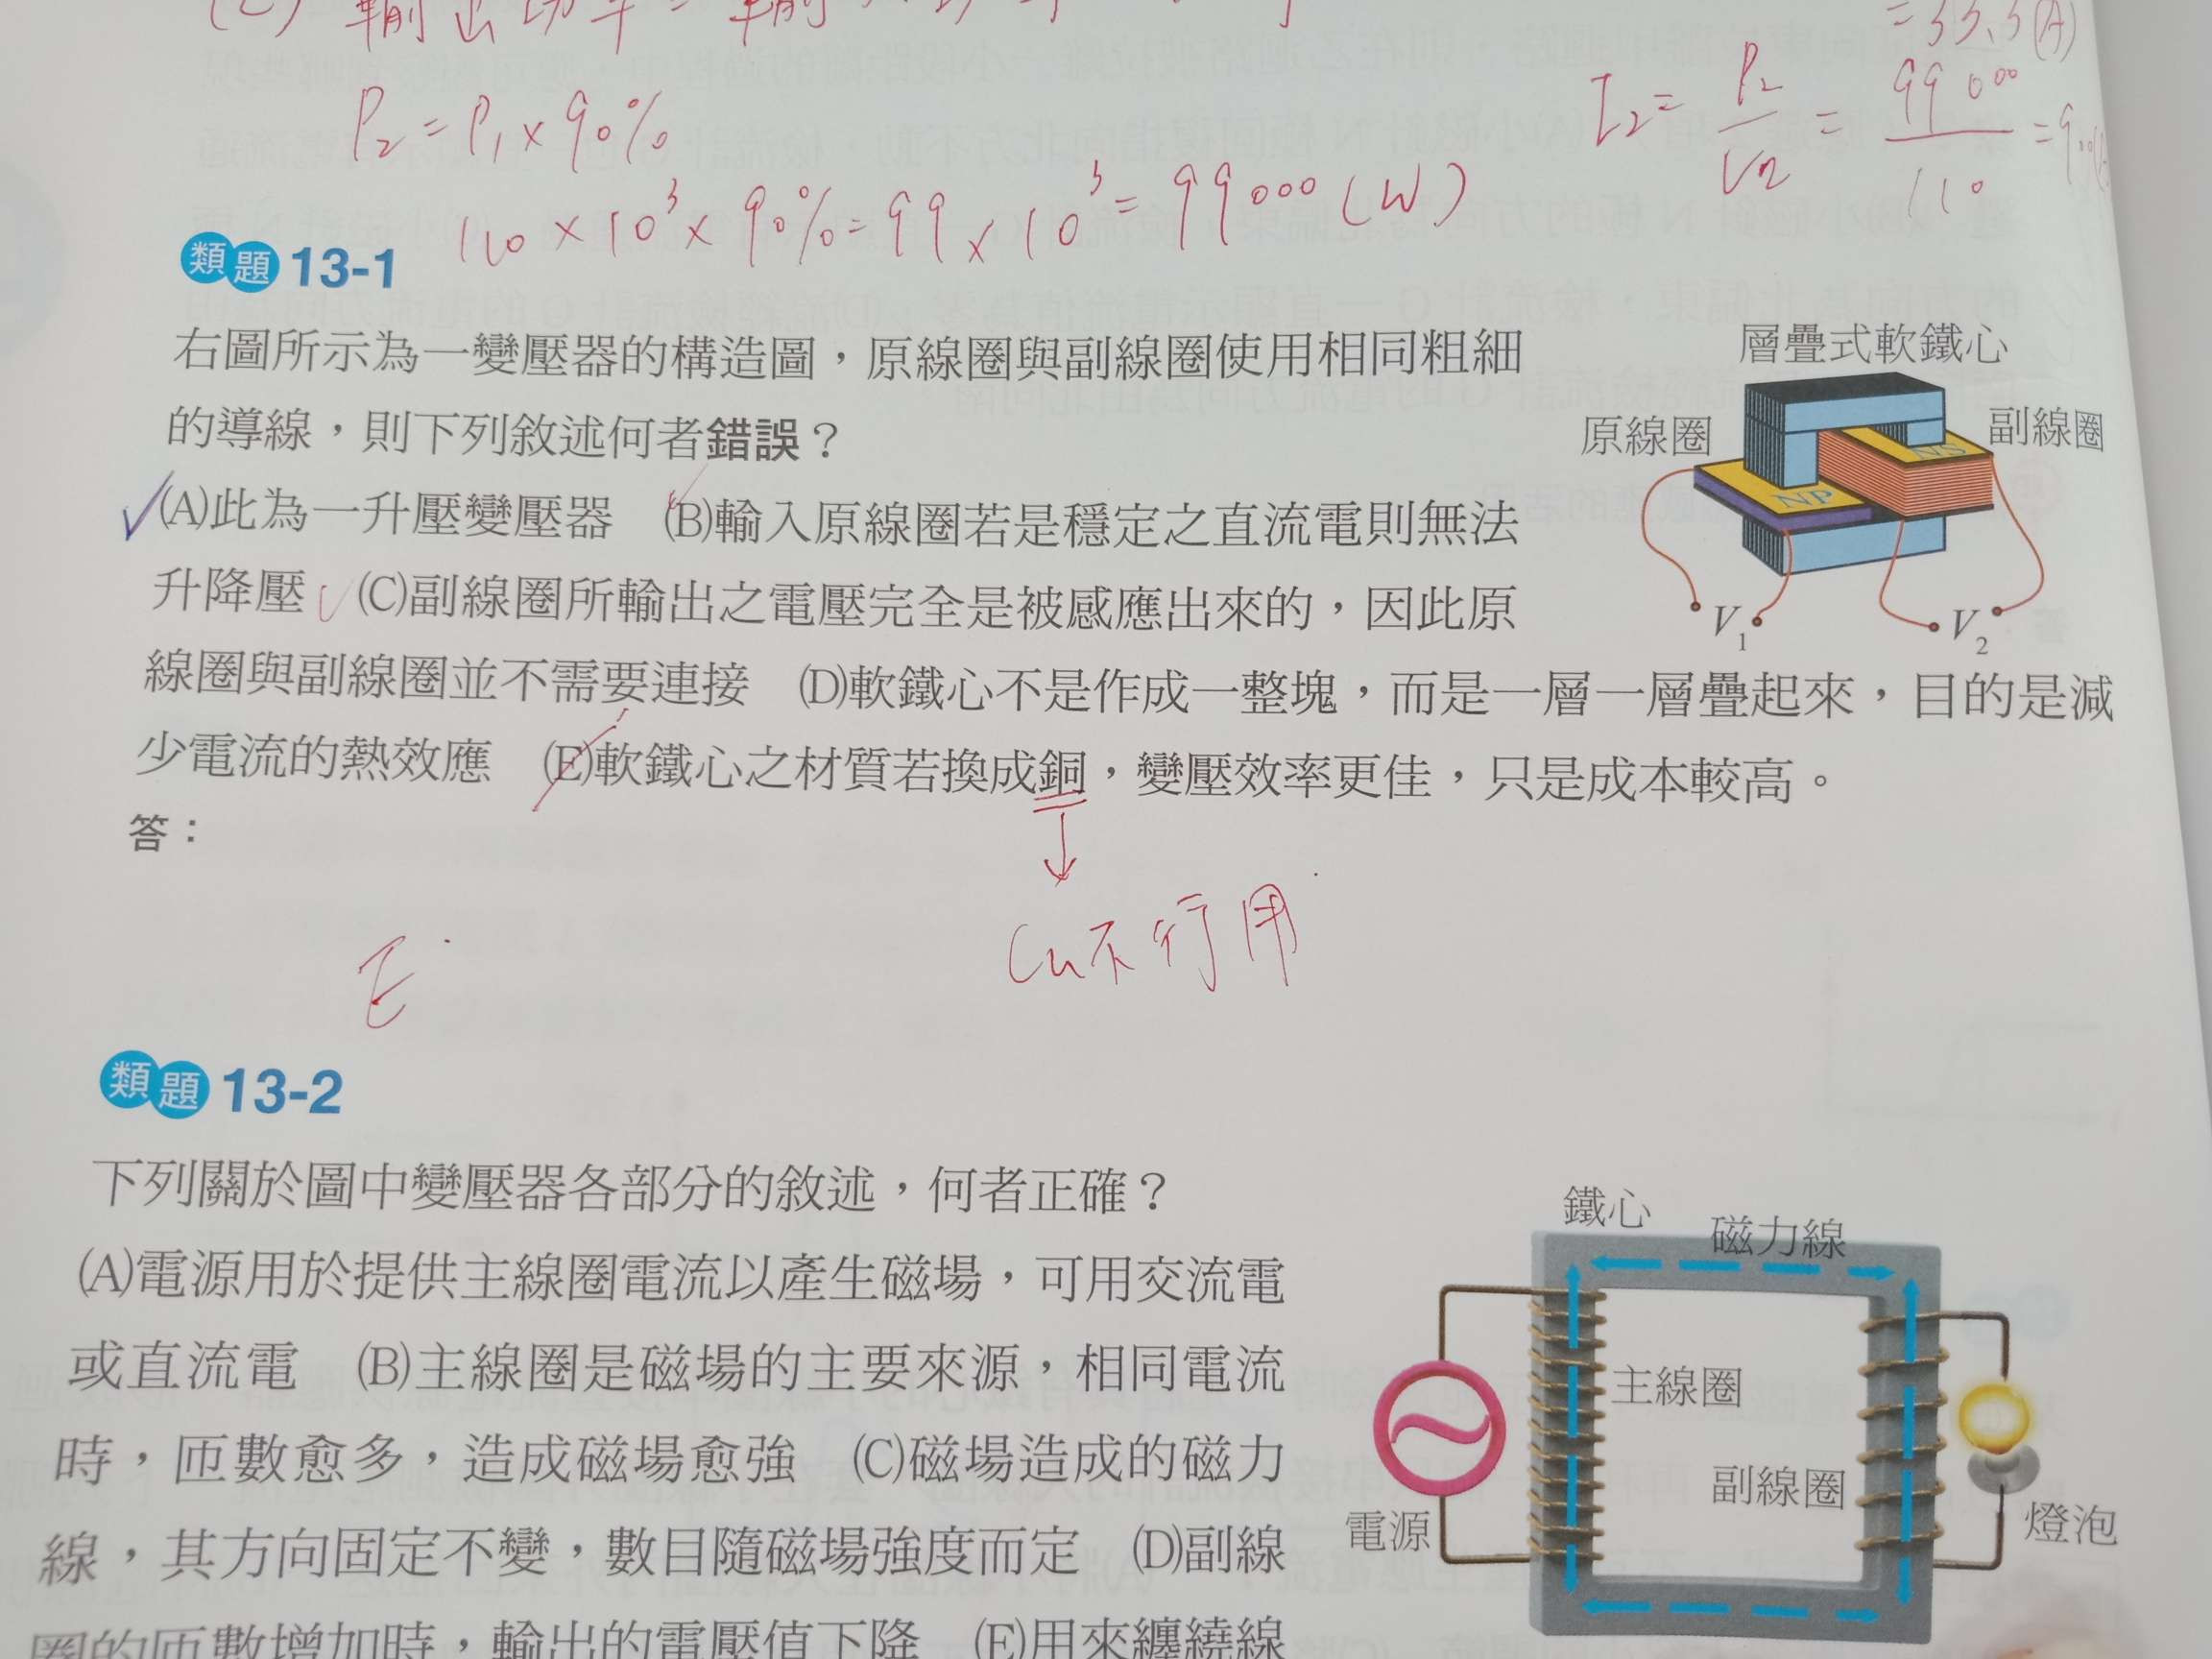 P₂ = P₁ × 90%
110 × 10³ × 90% = 99 × 10³ = 99000 (W)
= 33.3 (A)
I₂ = P₂/V₂ = 99000/110
類題 13-1
右圖所示為一變壓器的構造圖，原線圈與副線圈使用相同粗細
的導線，則下列敘述何者錯誤？
(A)此為一升壓變壓器 (B)輸入原線圈若是穩定之直流電則無法
升降壓 (C)副線圈所輸出之電壓完全是被感應出來的，因此原
線圈與副線圈並不需要連接 (D)軟鐵心不是作成一整塊，而是一層一層疊起來，目的是減
少電流的熱效應 (E)軟鐵心之材質若換成銅，變壓效率更佳，只是成本較高。
層疊式軟鐵心
原線圈
副線圈
NP
NS
V₁
V₂
答：
E
Cu不行用
類題 13-2
下列關於圖中變壓器各部分的敘述，何者正確？
(A)電源用於提供主線圈電流以產生磁場，可用交流電
或直流電 (B)主線圈是磁場的主要來源，相同電流
時，匝數愈多，造成磁場愈強 (C)磁場造成的磁力
線，其方向固定不變，數目隨磁場強度而定 (D)副線
圈的匝數增加時，輸出的電壓值下降 (E)用來纏繞線
鐵心
磁力線
主線圈
副線圈
電源
燈泡